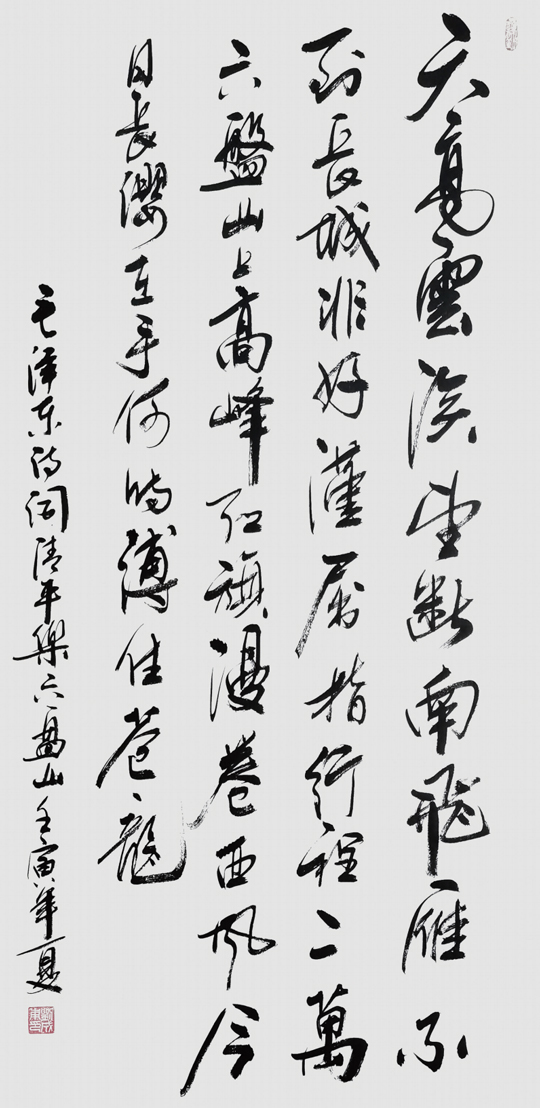 天高雲淡望断南飛雁不
到長城非好漢屈指行程二萬
六盤山上高峰红旗漫卷西風今
日長纓在手何時縛住苍龍
毛泽东诗词清平樂六盘山壬寅年夏